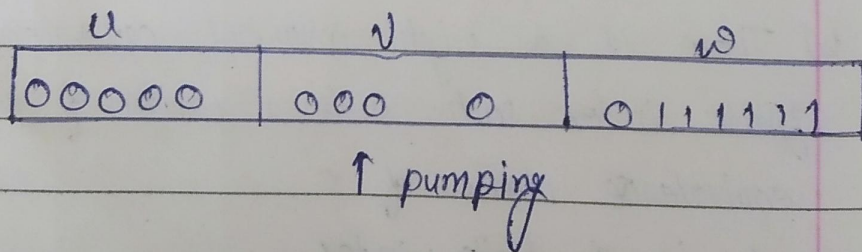 u v w
00000 000 0 0111111
↑ pumping